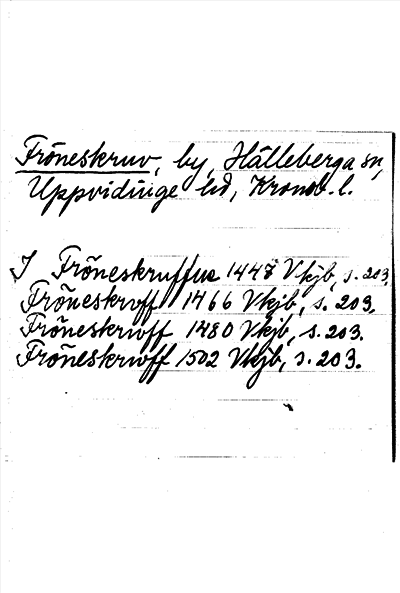 Fröneskruv, by, Hälleberga sn,
Uppvidinge hd, Kronob. l.
J Fröneskruffue 1447 Vkjb, s. 203.
Fröneskrvff 1466 Vkjb, s. 203.
Fröneskrwff 1480 Vkjb, s. 203.
Fröneskrwff 1502 Vkjb, s. 203.